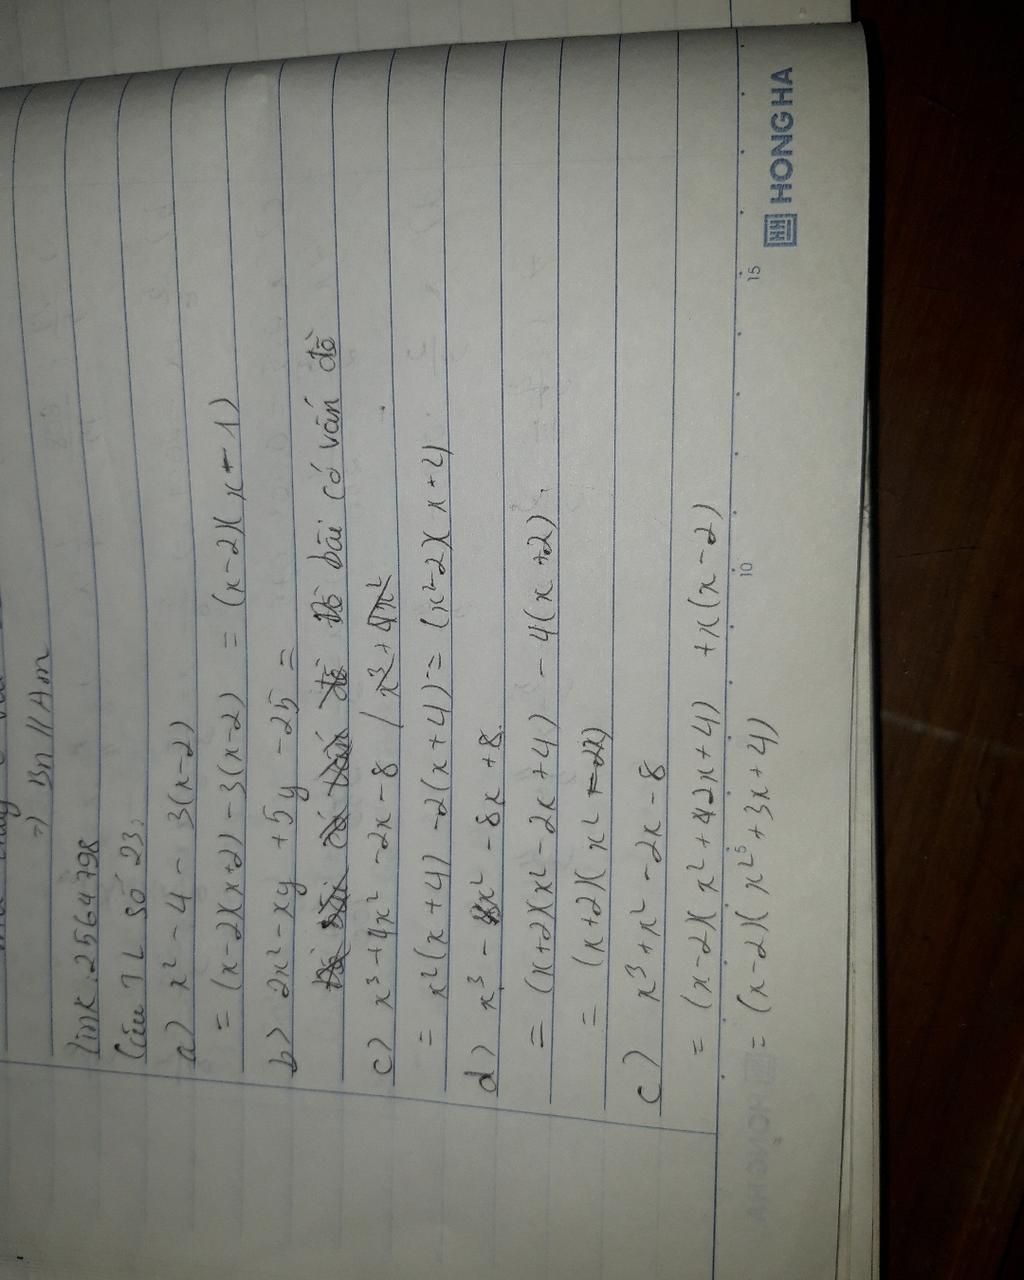 =) Bn // Am
link : 2564798
Câu TL số 23:
a) x² - 4 - 3(x-2)
= (x-2)(x+2) - 3(x-2) = (x-2)(x-1)
b) 2x² - xy + 5y - 25 =
Đề bài có vấn đề Đề bài có vấn đề
c) x³ + 4x² - 2x - 8 / x³ + 4x²
= x²(x+4) - 2(x+4) = (x²-2)(x+4)
d) x³ - 4x² - 8x + 8
= (x+2)(x² - 2x + 4) - 4(x+2).
= (x+2)(x² - 2x)
c) x³ + x² - 2x - 8
= (x-2)(x² + 2x + 4) + x(x-2)
= (x-2)(x² + 3x + 4)
10
15
HONG HA